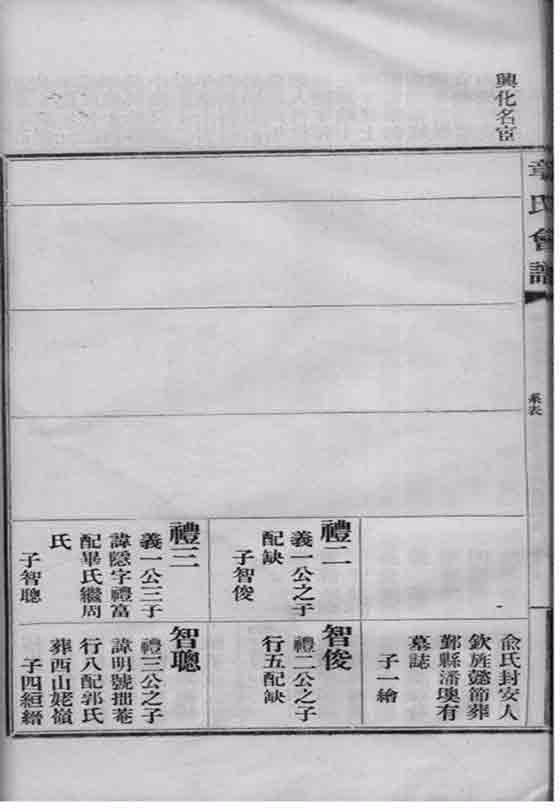 興化名宦
章氏會譜
系表
禮二
義一公之子
配缺
子智俊
禮三
義一公三子
諱隱字禮富
配畢氏繼周
氏
子智聰
俞氏封安人
欽旌懿節葬
鄞縣潘墺有
墓誌
子一繪
智俊
禮二公之子
行五配缺
智聰
禮三公之子
諱明號拙菴
行八配郭氏
葬西山姥嶺
子四絙縉